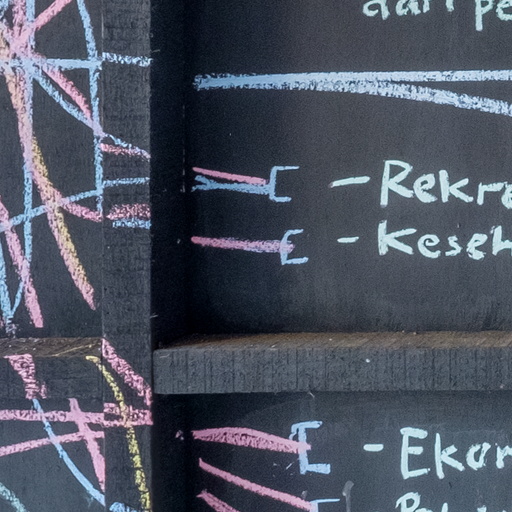 dari pe
- Rekre
- Keseh
- Ekon